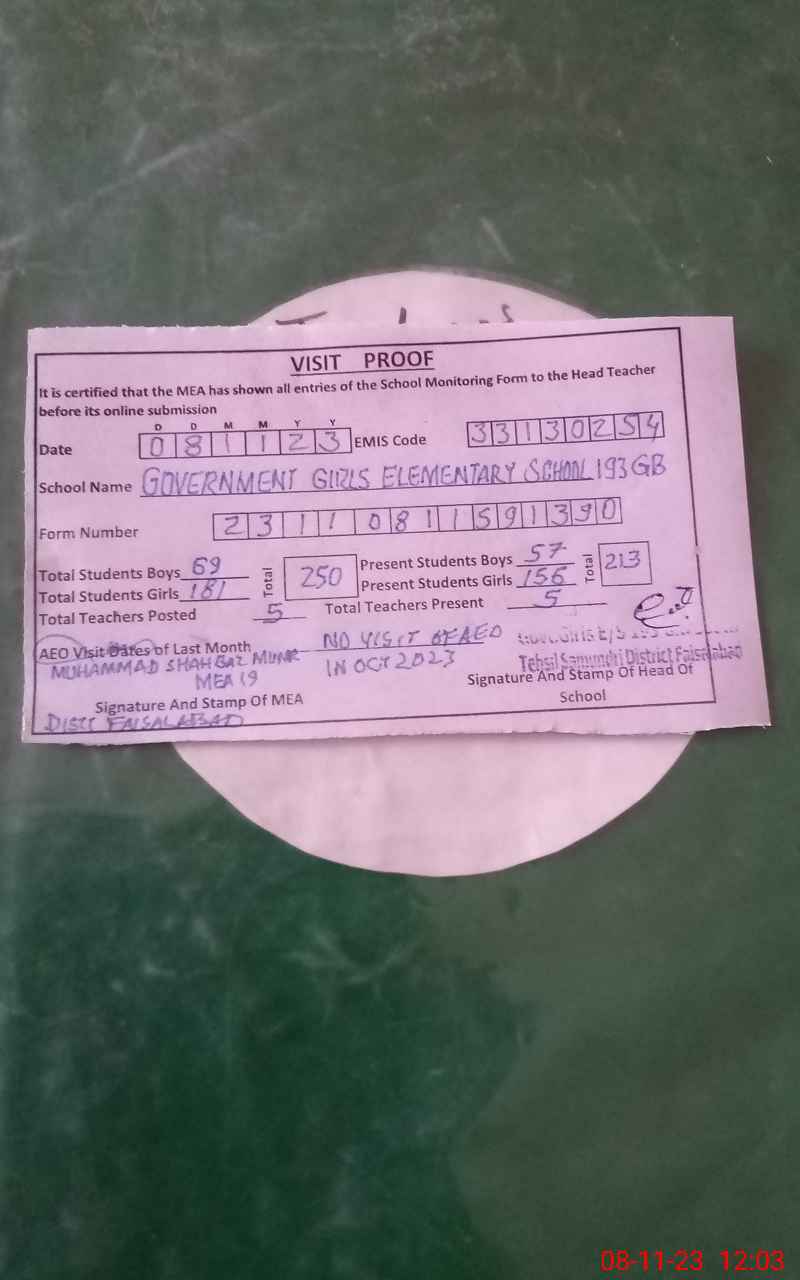 VISIT PROOF
It is certified that the MEA has shown all entries of the School Monitoring Form to the Head Teacher
before its online submission
D D M M Y Y
Date 0 8 1 1 2 3 EMIS Code 3 3 1 3 0 2 5 4
School Name GOVERNMENT GIRLS ELEMENTARY SCHOOL 193 GB
Form Number 2 3 1 1 0 8 1 1 5 9 1 3 9 0
Total Students Boys 69 Total 250 Present Students Boys 57 Total 213
Total Students Girls 181 Present Students Girls 156
Total Teachers Posted 5 Total Teachers Present 5
AEO Visit Dates of Last Month NO VISIT OF AEO
IN OCT 2023
MUHAMMAD SHAHBAZ MUNIR
MEA 19
Tehsil Samundri District Faisalabad
Signature And Stamp Of MEA Signature And Stamp Of Head Of
School
DISTT FAISALABAD
08-11-23 12:03